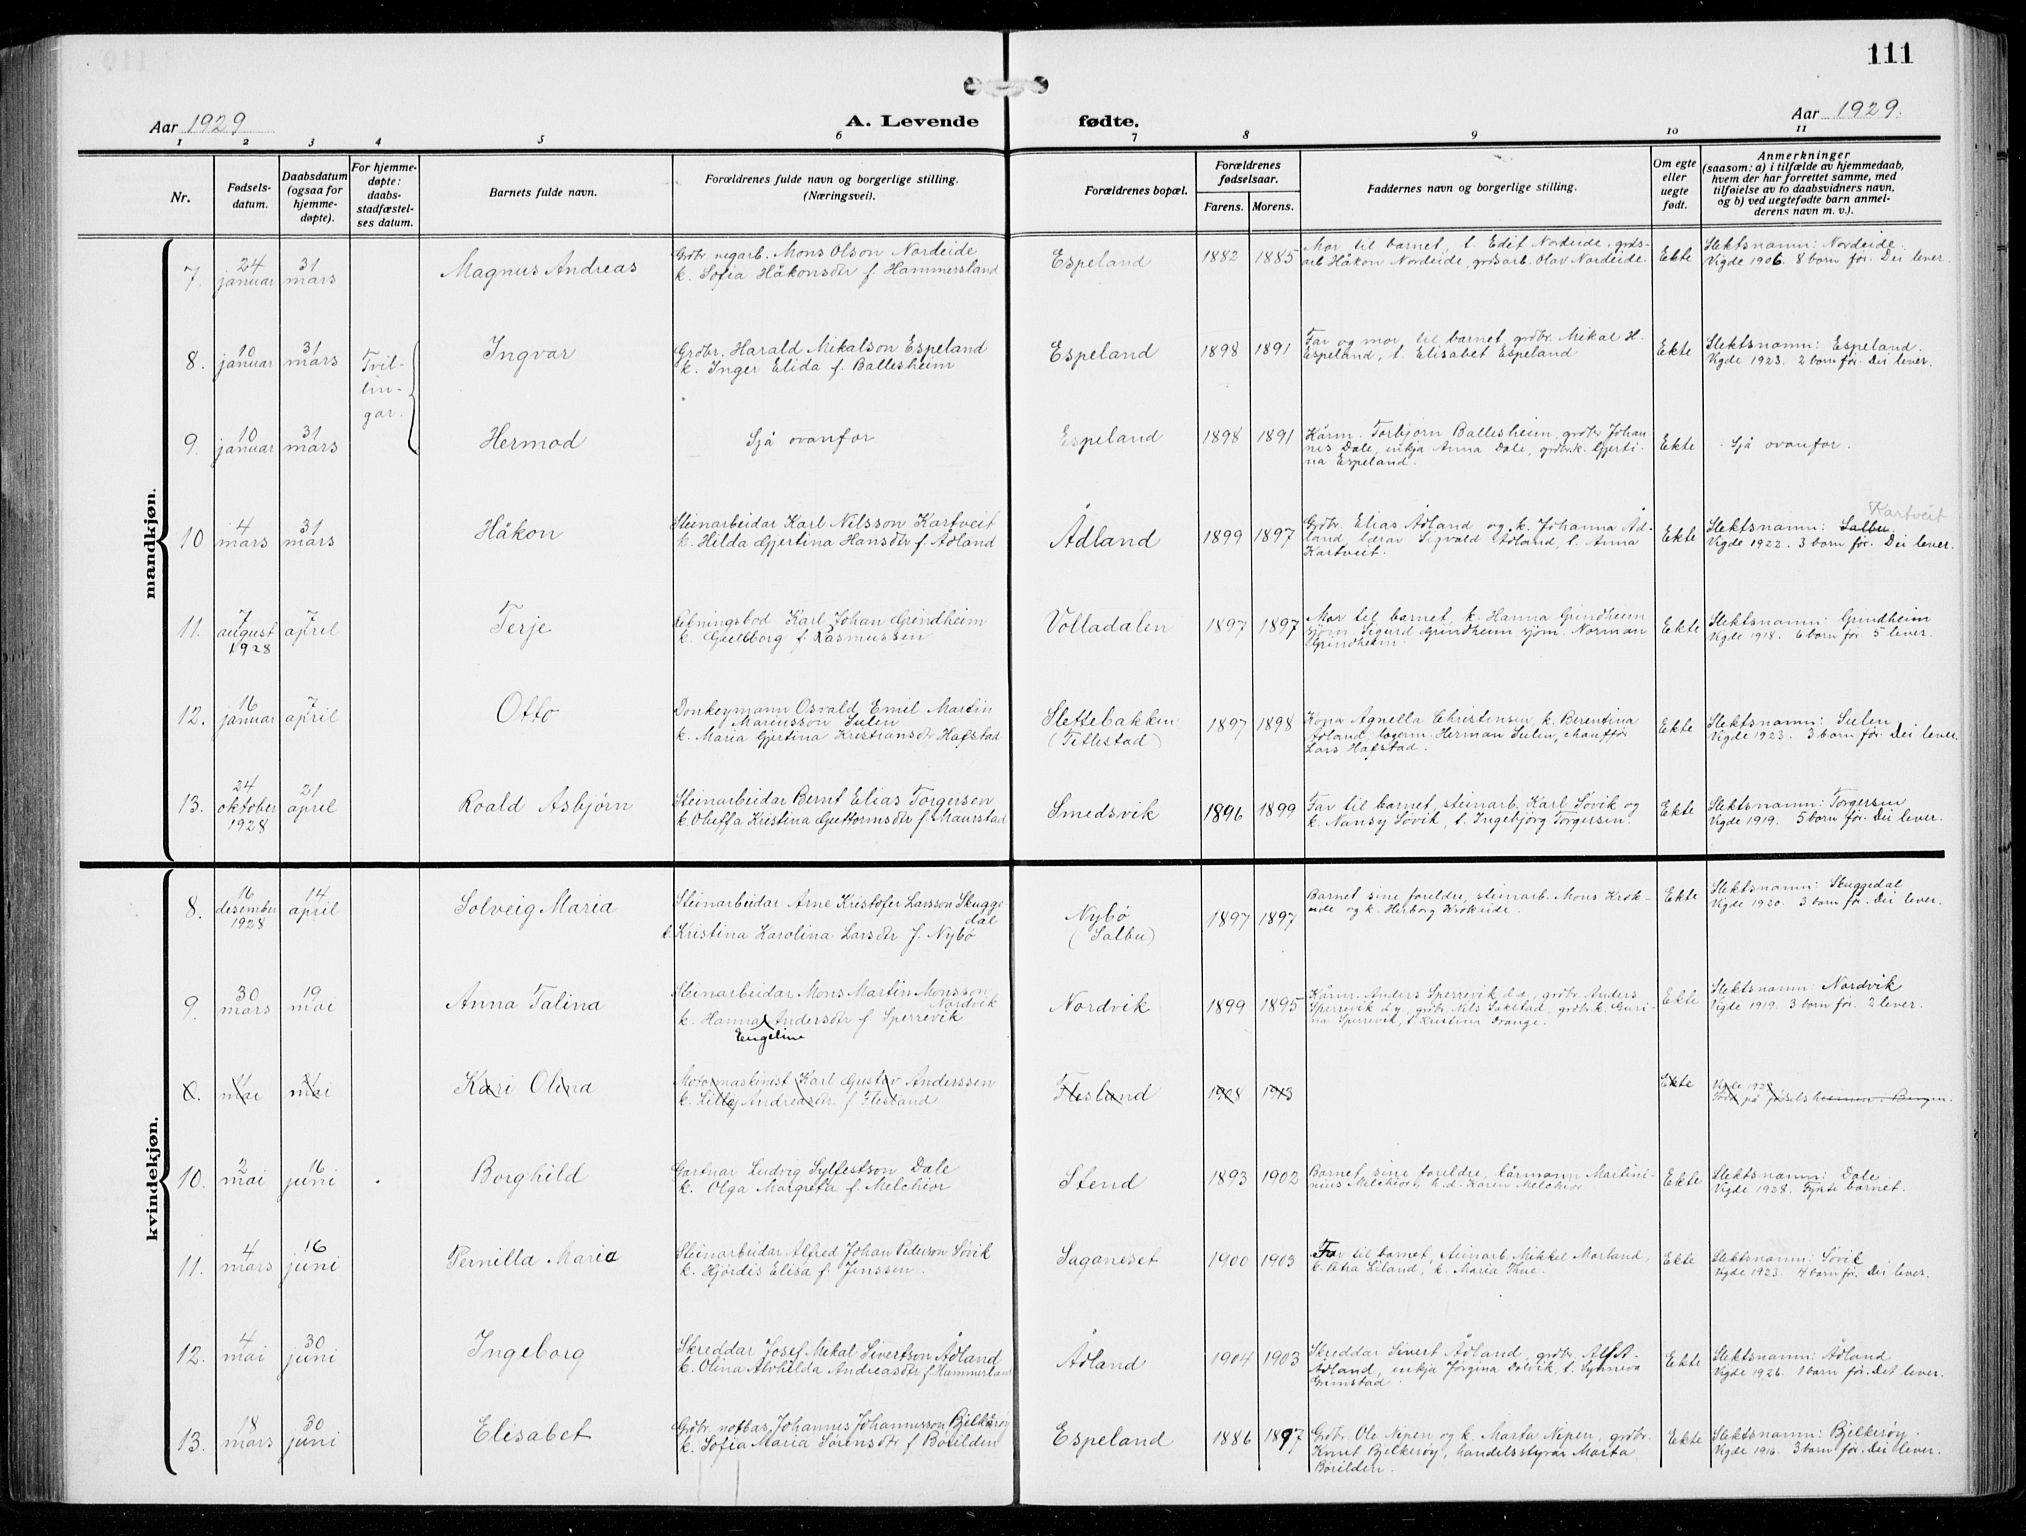 111
Aar 1929
A. Levende fødte.
Aar 1929.
1 2 3 4 5 6 7 8 9 10 11
Nr.
Fødsels-
datum.
Daabsdatum
(ogsaa for
hjemme-
døpte).
For hjemme-
døpte:
daabs-
stadfæstel-
ses datum.
Barnets fulde navn.
Forældrenes fulde navn og borgerlige stilling.
(Næringsvei).
Forældrenes bopæl.
Forældrenes
fødselsaar.
Farens. Morens.
Faddernes navn og borgerlige stilling.
Om egte
eller
uegte
født.
Anmerkninger
(saasom: a) i tilfælde av hjemmedaab,
hvem der har forrettet samme, med
tilføielse av to daabsvidners navn,
og b) ved uegtefødte barn anmel-
derens navn m. v.).
mandkjøn.
7. 24 januar 31 mars Magnus Andreas
Grdbr. vegarb. Mons Olson Nordeide
k. Sofia Håkonsdtr f. Hammersland
Espeland 1882 1885
Mor til barnet, t. Edit Nordeide, grds-
arb Håkon Nordeide, grdsarb. Olav Nordeide.
Ekte
Slektsnamn: Nordeide.
Vigde 1906. 8 born før. Dei lever.
8. 10 januar 31 mars
Tvil-
lin-
gar.
Ingvar
Grdbr. Harald Mikalson Espeland
k. Inger Elida f. Ballesheim
Espeland 1898 1891
Far og mor til barnet, grdbr. Mikal H.
Espeland, t. Elisabet Espeland
Ekte
Slektsnamn: Espeland.
Vigde 1923. 2 born før. Dei lever.
9. 10 januar 31 mars Hermod
Sjå ovanfor
Espeland 1898 1891
Kårm. Torbjørn Ballesheim, grdbr Johan-
nes Dale, enkja Anna Dale, grdbr.k. Gjerti-
na Espeland.
Ekte
Sjå ovanfor.
10 4 mars 31 mars Håkon
Steinarbeidar Karl Nilsson Kartveit
k. Hilda Gjertina Hansdtr f. Ådland
Ådland 1899 1897
Grdbr. Elias Ådland og k. Johanna Åd-
land, lærar Sigvald Ådland, t. Anna
Kartveit.
Ekte
Kartveit
Slektsnamn: Salbu.
Vigde 1922. 3 born før. Dei lever.
11. 7 august 1928 7 april Terje
Karl Johan Grindheim
k. Guldborg f. Rasmussen
Volladalen 1897 1897
Mor til barnet, k. Hanna Grindheim
sjøm. Sigurd Grindheim sjøm. Norman
Grindheim.
Ekte
Slektsnamn: Grindheim
Vigde 1918. 6 born før. 5 lever.
12. 16 januar 7 april Otto
Donkeymann Osvald Emil Martin
Mariusson Sulen
k. Maria Gjertina Kristiansdtr Hafstad
Slettebakken
(Tillestad)
1897 1898
Kona Agnella Christensen, k. Berentina
Ådland, lagerm. Herman Sulen, chauffør
Lars Hafstad.
Ekte
Slektsnamn: Sulen
Vigde 1923. 3 born før. Dei lever.
13. 24 oktober 1928 21 april Roald Asbjørn
Steinarbeidar Bernt Elias Torgersen
k. Oluffa Kristina Guttormsdtr f. Maurstad
Smedsvik 1896 1899
Far til barnet, steinarb. Karl Søvik og
k. Nansy Søvik, t. Ingebjørg Torgersen.
Ekte
Slektsnamn: Torgersen
Vigde 1919. 5 born før. Dei lever.
kvindekjøn.
8. 16 desember 1928 14 april Solveig Maria
Steinarbeidar Arne Kristofer Larsson Skugge-
dal
k. Kristina Karolina Larsdtr f. Nybø
Nybø
(Salbu)
1897 1897
Barnet sine foreldre, steinarb. Mons Krok-
eide og k. Herborg Krokeide.
Ekte
Slektsnamn: Skuggedal
Vigde 1920. 3 born før. Dei lever.
9. 30 mars 19 mai Anna Talina
Steinarbeidar Mons Martin Monsson
Nordvik
k. Hanna Andersdtr f Sperrevik
Engeline
Nordvik 1899 1895
Kårm. Anders Sperrevik d.e., grdbr. Anders
Sperrevik d.y., grdbr. Nils Sakstad, grdbr. k. Guri-
na Sperrevik, t. Kristina Drange.
Ekte
Slektsnamn: Nordvik
Vigde 1919. 3 born før. 2 lever.
mai mai Kari Olina
Motormaskinist Karl Gustav Anderssen
k. Lilly Andreasdtr. f Flesland
Flesland 1908 1913
Ekte
Vigde
Født på fødselsheimen i Bergen.
10. 2 mai 16 juni Borghild
Gartnar Ludvig Sylfestson Dale
k. Olga Margreta f. Melchior
Stend 1893 1902
Barnet sine foreldre, kårmann Martini-
nius Melchior, h.d. Karen Melchior
Ekte
Slektsnamn: Dale.
Vigde 1928. Fyrste barnet.
11. 4 mars 16 juni Pernilla Maria
Steinarbeidar Alfred Johan Pederson Søvik
k. Hjørdis Elisa f. Jenssen.
Saganeset 1900 1903
Far til barnet, steinarb. Mikkel Marland,
k. Petra Liland, k. Maria Thue.
Ekte
Slektsnamn: Søvik
Vigde 1923. 4 born før. Dei lever.
12. 4 mai 30 juni Ingeborg
Skreddar Josef Mikal Sivertson Ådland
k. Olina Alvhilda Andreasdtr f Hammerland
Ådland 1904 1903
Skreddar Sivert Ådland, grdbr. Alf A.
Ådland, enkja Jørgina Dalvik, t. Synneva
Grimstad.
Ekte
Slektsnamn: Ådland
Vigde 1926. 1 born før. Det lever.
13. 18 mars 30 juni Elisabet
Grdbr. notbas Johannes Johannesson Bjelkerøy
k. Sofia Maria Sørensdtr f Børilden
Espeland 1886 1897
Grdbr. Ole Nipen og k. Marta Nipen, grdbr.
Knut Bjelkerøy, handelsstyrar Marta
Børilden.
Ekte
Slektsnamn: Bjelkerøy.
Vigde 1916. 3 born før. Dei lever.